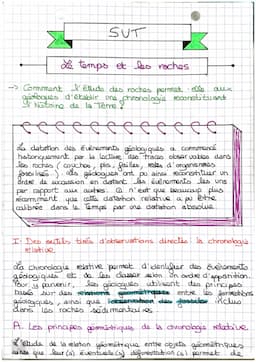 SVT
Le temps et les roches
-> Comment l'étude des roches permet-elle aux
géologues d'établir une chronologie reconstituant
l'histoire de la Terre ?
La datation des événements géologiques a commencé
historiquement par la lecture des traces observables dans
les roches (couches, plis, failles, restes d'organismes
fossilisés). Les géologues ont pu ainsi reconstituer un
ordre de succession en datant les événements les uns
par rapport aux autres. Ce n'est que beaucoup plus
récemment que cette datation relative a pu être
calibrée dans le temps par une datation absolue.
I - Des outils tirés d'observations directes : la chronologie
relative.
La chronologie relative permet d'identifier des événements
géologiques et de les classer selon un ordre d'apparition.
Pour y parvenir, les géologues utilisent des principes
basés sur des relations géométriques entre les formations
géologiques, ainsi que l'observation des fossiles inclus
dans les roches sédimentaires.
A. Les principes géométriques de la chronologie relative
L'étude de la relation géométrique entre objets géométriques
ainsi que leur(s) éventuelle(s) déformation(s) permet :